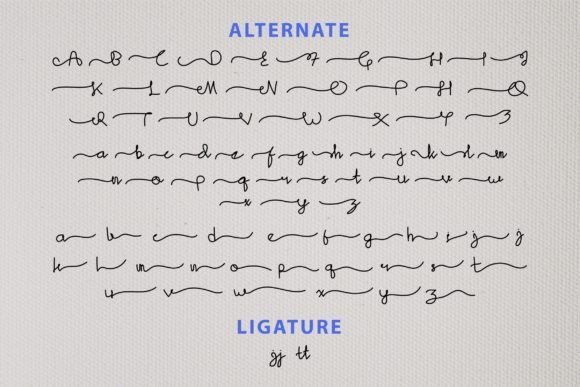 ALTERNATE
A B C D E F G H I J
K L M N O P H Q
R T U V W X Y Z
a b c d e f g h i j k l m
n o p q r s t u v w
x y z
a b c d e f g h i j j
k l m n o p q r s t
u v w x y z
LIGATURE
jj tt